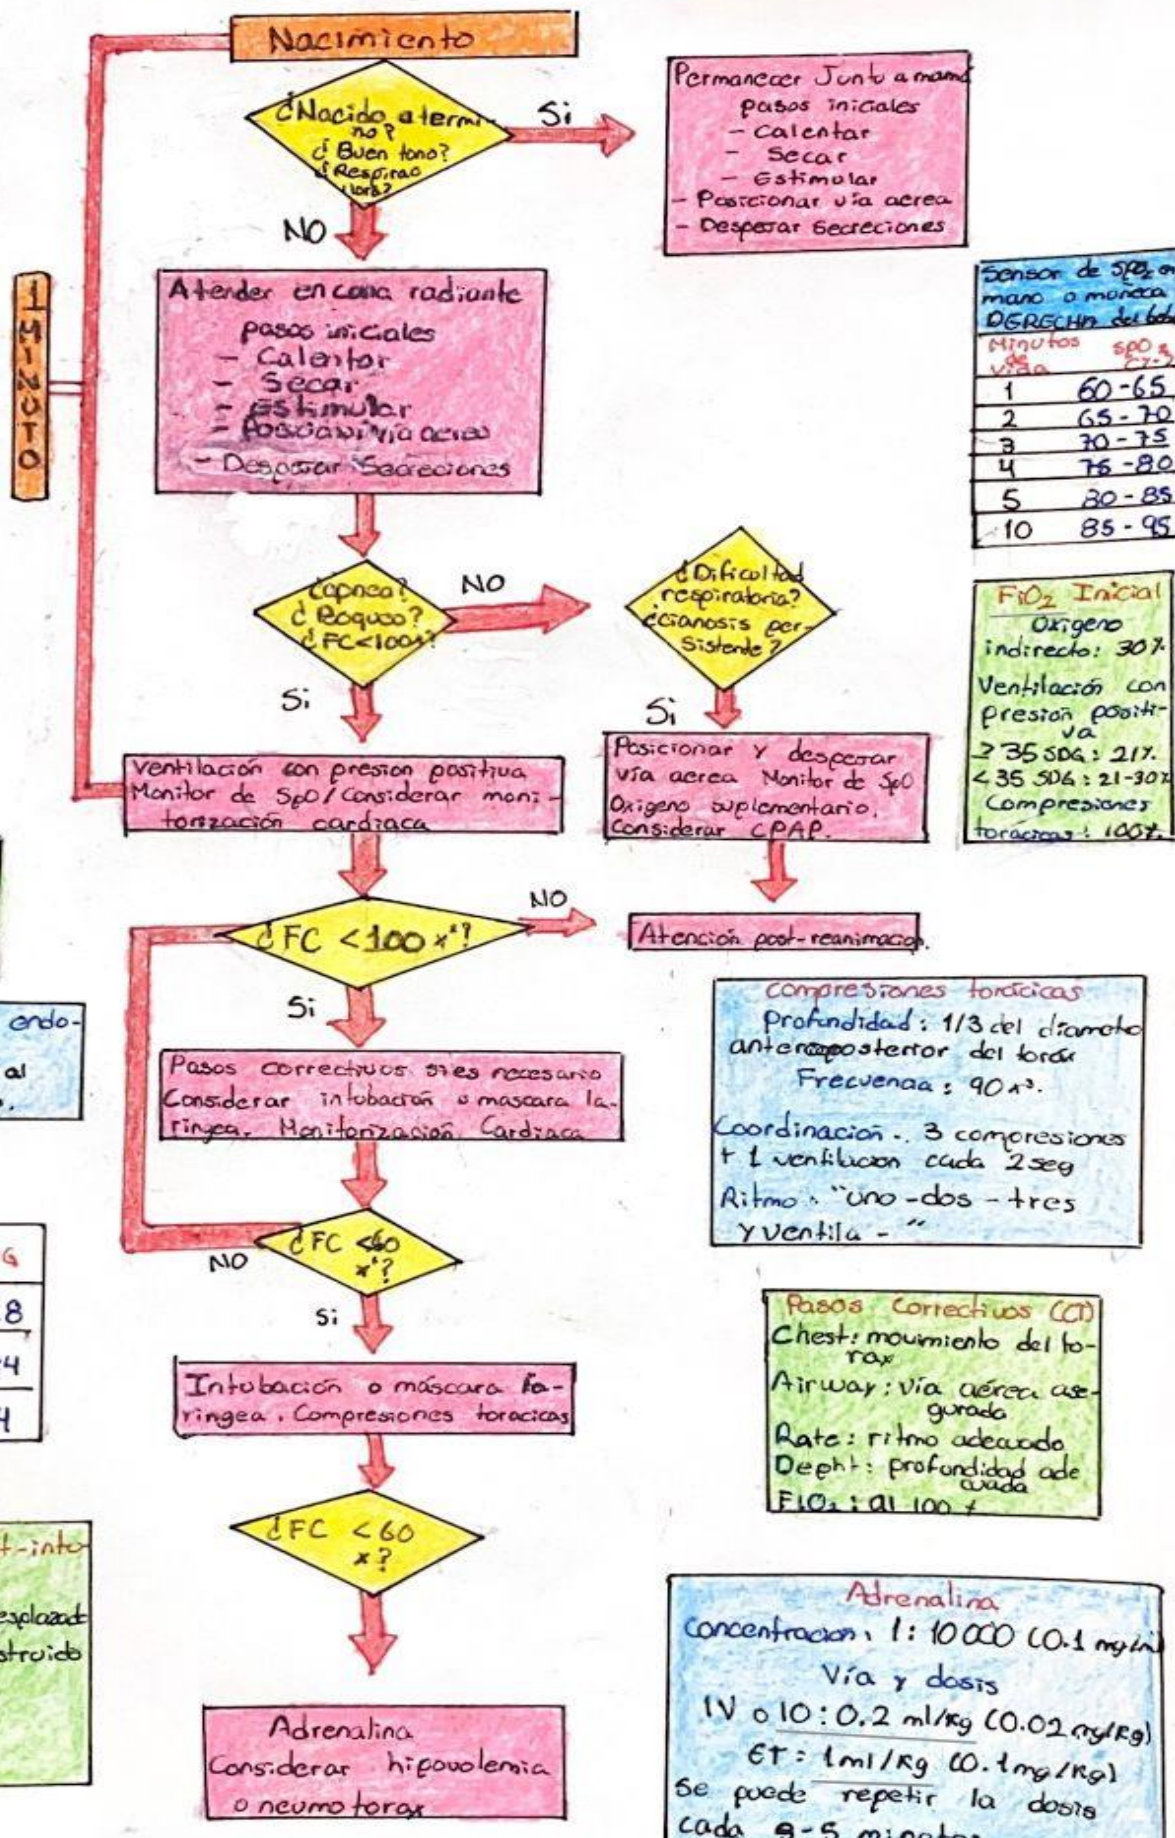 Nacimiento
¿Nacido a termi-
no?
¿Buen tono?
¿Respira o
llora?
Si
Permanecer Junto a mamá
pasos iniciales
- Calentar
- Secar
- Estimular
- Posicionar vía aerea
- Despejar Secreciones
NO
1 MINUTO
Atender en cuna radiante
pasos iniciales
- Calentar
- Secar
- Estimular
- vía aerea
- Despejar Secreciones
Sensor de SpO2 en
mano o muñeca
DERECHA del bebé
Minutos de vida SpO2
1 60-65
2 65-70
3 70-75
4 75-80
5 80-85
10 85-95
¿apnea?
¿Boqueo?
¿FC<100x?
NO
¿Dificultad
respiratoria?
¿cianosis per-
sistente?
Si
Si
FiO2 Inicial
Oxigeno
indirecto: 30%
Ventilación con
presión positi-
va
≥35 SDG: 21%
<35 SDG: 21-30%
Compresiones
toracicas: 100%
Ventilación con presion positiva
Monitor de SpO/Considerar moni-
torización cardiaca
Posicionar y despejar
vía aerea Monitor de SpO
Oxigeno suplementario.
Considerar CPAP.
¿FC <100 x'?
NO
Atención post-reanimacion.
Si
Pasos correctivos si es necesario
Considerar intubación o mascara la-
ringea. Monitorización Cardiaca
compresiones torácicas
Profundidad: 1/3 del diametro
anteroposterior del torax
Frecuencia: 90 x'.
Coordinación.. 3 compresiones
+ 1 ventilacion cada 2 seg
Ritmo. "uno-dos-tres
y ventila-"
endo-
al
¿FC <60
x'?
NO
Si
G
8
4
4
Intubación o máscara la-
ringea. Compresiones toracicas
Pasos Correctivos
Chest: movimiento del to-
rax
Airway: vía aérea ase-
gurada
Rate: ritmo adecuado
Depht: profundidad ade
cuada
FIO2: al 100%
¿FC <60
x?
t-intu-
esplazado
struido
Adrenalina
Considerar hipovolemia
o neumotorax
Adrenalina
Concentracion: 1:10 000 (0.1 mg/ml)
Vía y dosis
IV o IO: 0.2 ml/kg (0.02 mg/kg)
ET: 1ml/kg (0.1mg/kg)
Se puede repetir la dosis
cada -5 minutos